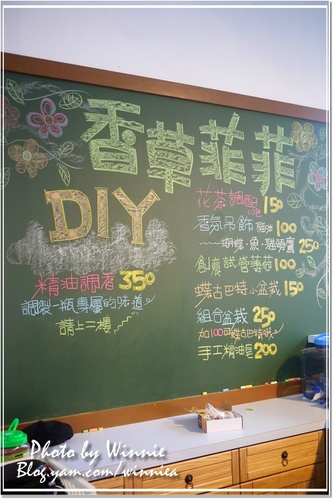 香草菲菲
DIY
精油調香 350
調製一瓶專屬的味道
請上二樓
花茶調配 150
香氛吊飾 100
蝴蝶、魚、貓頭鷹 250
創意試管蘭花 100
蝶古巴特小盆栽 150
組合盆栽 250
加100可蝶古巴特哦
手工精油皂 200
Photo by Winnie
Blog.yam.com/winniea